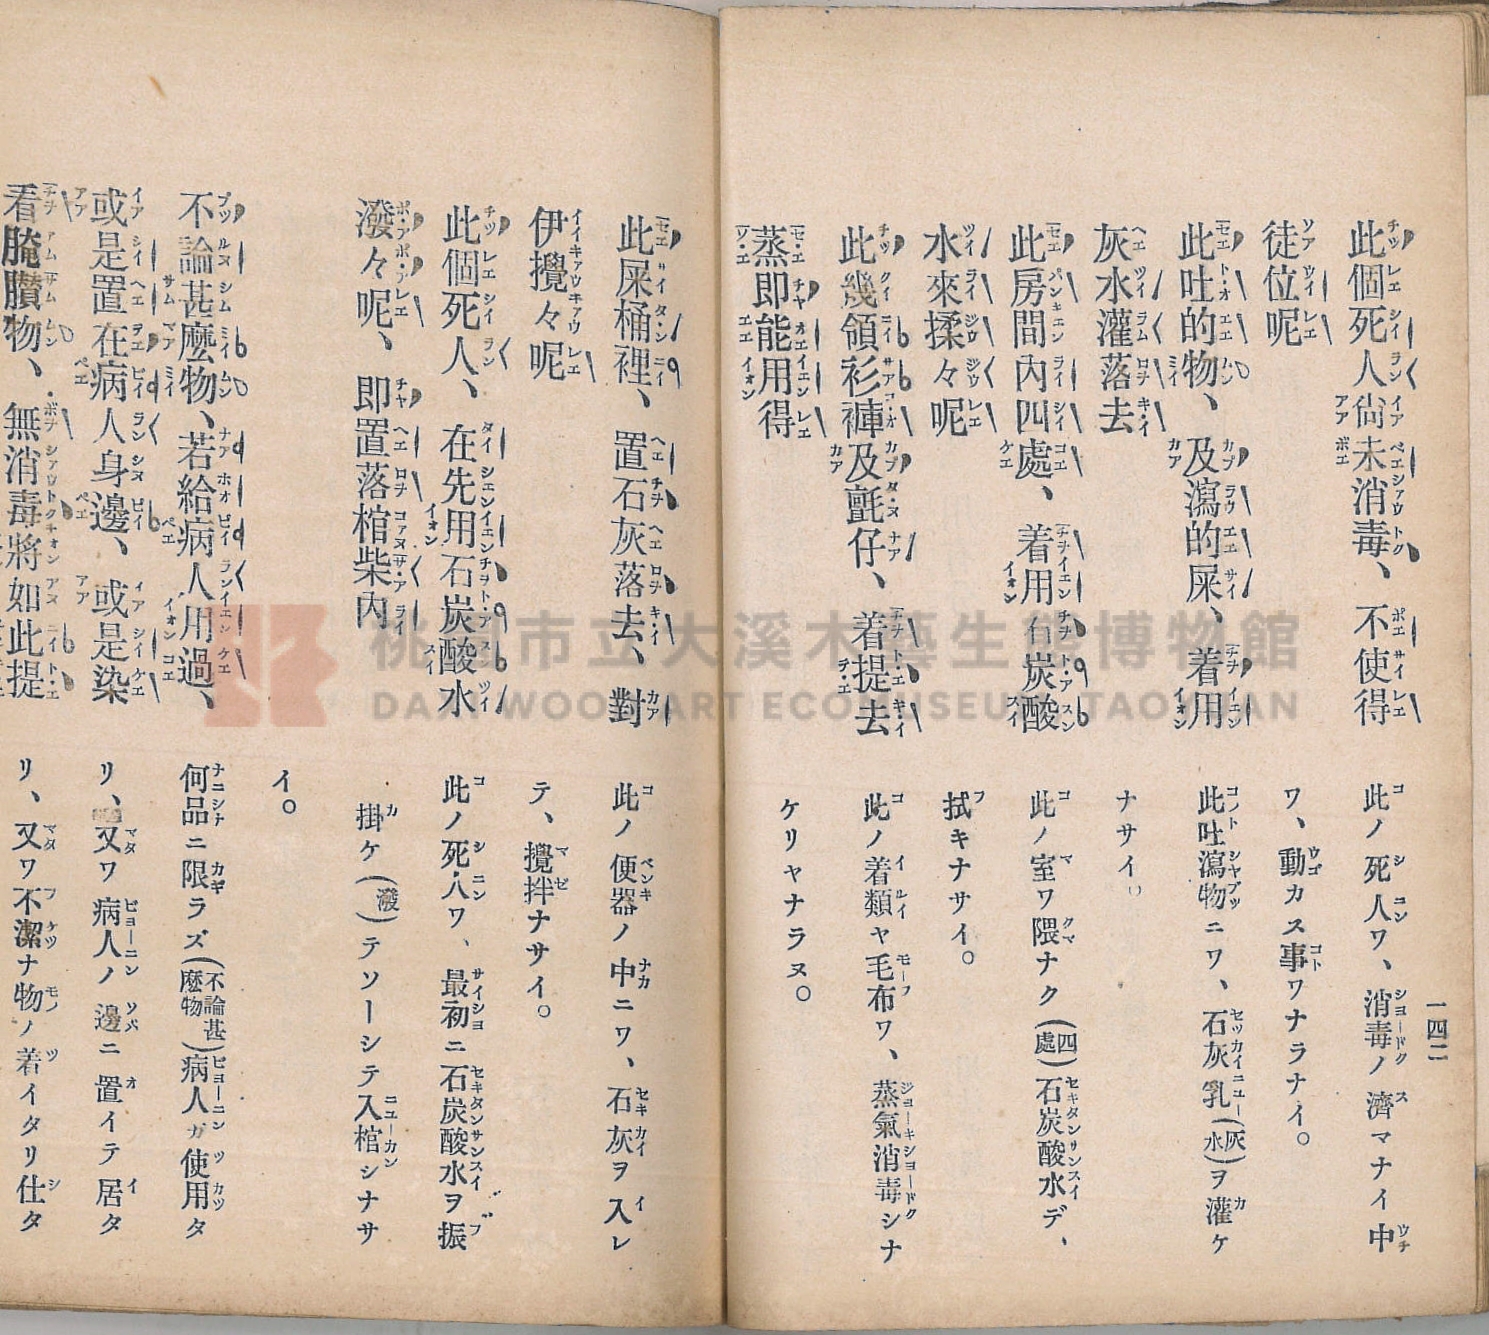 一四二
此個死人尙未消毒、不使得
徒位呢
此吐的物、及瀉的屎、着用
灰水灌落去
此房間內四處、着用石炭酸
水來揉々呢
此幾領衫褲及氈仔、着提去
蒸即能用得
此ノ死人ワ、消毒ノ濟マナイ中
ワ、動カス事ワナラナイ。
此吐瀉物ニワ、石灰乳(灰水)ヲ灌ケ
ナサイ。
此ノ室ワ隈ナク(四處)石炭酸水デ、
拭キナサイ。
此ノ着類ヤ毛布ワ、蒸氣消毒シナ
ケリャナラヌ。
此屎桶裡、置石灰落去、對
伊攪々呢
此個死人、在先用石炭酸水
潑々呢、即置落棺柴內
不論甚麼物、若給病人用過、
或是置在病人身邊、或是染
着腌臢物、無消毒將如此提
此ノ便器ノ中ニワ、石灰ヲ入レ
テ、攪拌ナサイ。
此ノ死人ワ、最初ニ石炭酸水ヲ振
掛ケ(潑)テソーシテ入棺シナサ
イ。
何品ニ限ラズ(不論甚麼物)病人ガ使用タ
リ、又ワ病人ノ邊ニ置イテ居タ
リ、又ワ不潔ナ物ノ着イタリ仕タ
桃園市立大溪木藝生態博物館
DAXI WOOD ART ECOMUSEUM, TAOYUAN